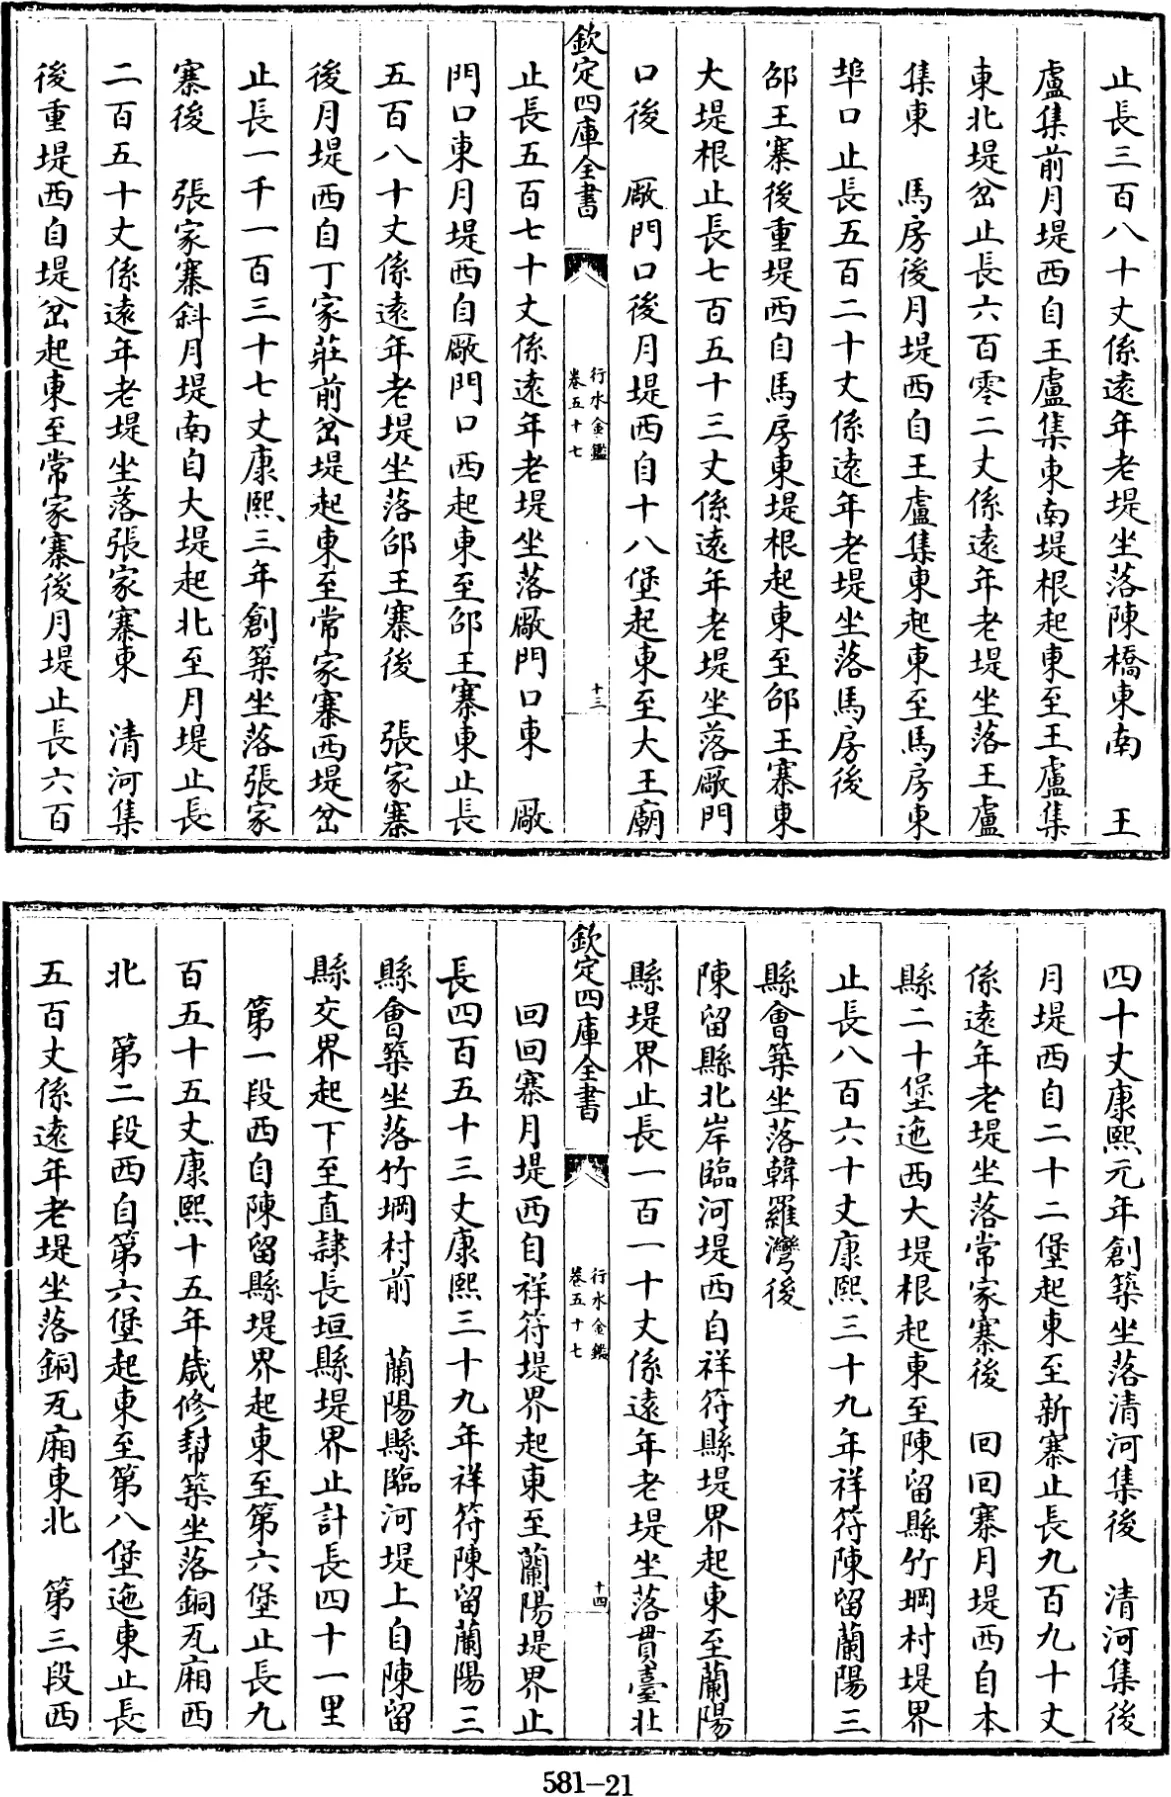 止長三百八十丈係遠年老堤坐落陳橋東南　王
盧集前月堤西自王盧集東南堤根起東至王盧集
東北堤岔止長六百零二丈係遠年老堤坐落王盧
集東　馬房後月堤西自王盧集東起東至馬房東
埠口止長五百二十丈係遠年老堤坐落馬房後
邵王寨後重堤西自馬房東堤根起東至邵王寨東
大堤根止長七百五十三丈係遠年老堤坐落廠門
口後　廠門口後月堤西自十八堡起東至大王廟
欽定四庫全書
行水金鑑
卷五十七
十三
止長五百七十丈係遠年老堤坐落廠門口東　廠
門口東月堤西自廠門口西起東至邵王寨東止長
五百八十丈係遠年老堤坐落邵王寨後　張家寨
後月堤西自丁家莊前岔堤起東至常家寨西堤岔
止長一千一百三十七丈康熙三年創築坐落張家
寨後　張家寨斜月堤南自大堤起北至月堤止長
二百五十丈係遠年老堤坐落張家寨東　清河集
後重堤西自堤岔起東至常家寨後月堤止長六百
四十丈康熙元年創築坐落清河集後　清河集後
月堤西自二十二堡起東至新寨止長九百九十丈
係遠年老堤坐落常家寨後　回回寨月堤西自本
縣二十堡迤西大堤根起東至陳留縣竹堈村堤界
止長八百六十丈康熙三十九年祥符陳留蘭陽三
縣會築坐落韓羅灣後
陳留縣北岸臨河堤西自祥符縣堤界起東至蘭陽
縣堤界止長一百一十丈係遠年老堤坐落貫臺北
欽定四庫全書
行水金鑑
卷五十七
十四
回回寨月堤西自祥符堤界起東至蘭陽堤界止
長四百五十三丈康熙三十九年祥符陳留蘭陽三
縣會築坐落竹堈村前　蘭陽縣臨河堤上自陳留
縣交界起下至直隷長垣縣堤界止計長四十一里
第一段西自陳留縣堤界起東至第六堡止長九
百五十五丈康熙十五年歲修幇築坐落銅瓦廂西
北　第二段西自第六堡起東至第八堡迤東止長
五百丈係遠年老堤坐落銅瓦廂東北　第三段西
581-21